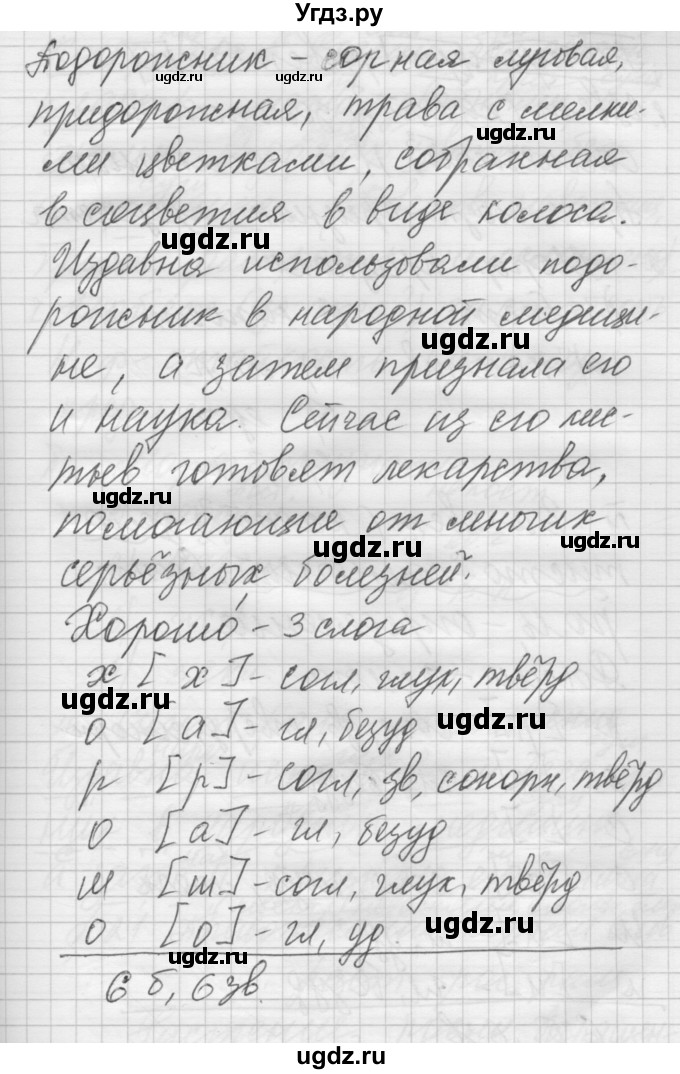 Угдз.ру
Подорожник - сорная луговая,
ugdz.ru ugdz.ru
придорожная, трава с мелки-
ugdz.ru
ми цветками, собранная
в соцветия в виде колоса.
ugdz.ru
Издавна использовали подо-
рожник в народной медици-
ugdz.ru
не, а затем признала его
и наука. Сейчас из его лис-
тьев готовят лекарства,
ugdz.ru
помогающие от многих
ugdz.ru
серьёзных болезней.
Хорошо́ - 3 слога
х [х] - согл, глух, твёрд
ugdz.ru ugdz.ru
о [а] - гл, безуд
р [р] - согл, зв, сонорн, твёрд
о [а] - гл, безуд
ш [ш] - согл, глух, твёрд
о [о] - гл, уд.
ugdz.ru
ugdz.ru
6 б, 6 зв.
ugdz.ru